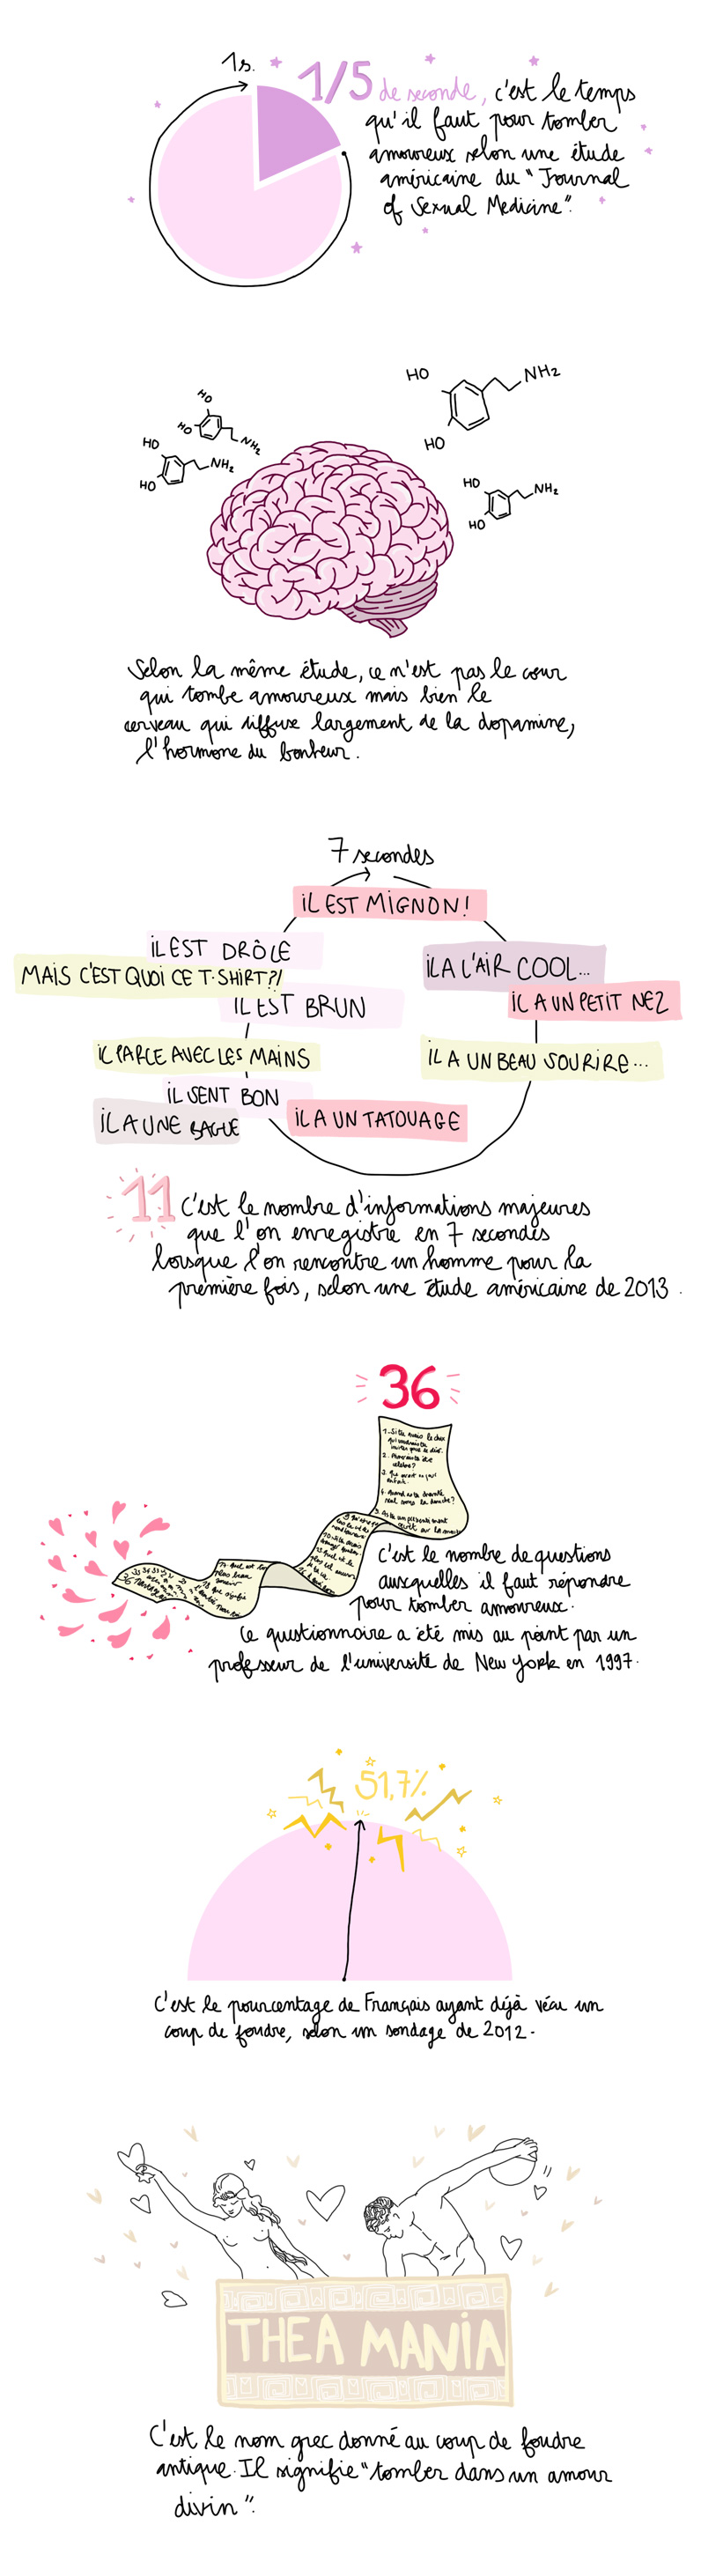 1s.
1/5 de seconde, c'est le temps
qu'il faut pour tomber
amoureux selon une étude
américaine du "Journal
of Sexual Medicine".
HO
NH2
HO
HO
HO
NH2
HO
NH2
HO
HO
NH2
HO
Selon la même étude, ce n'est pas le cœur
qui tombe amoureux mais bien le
cerveau qui diffuse largement de la dopamine,
l'hormone du bonheur.
7 secondes
iL EST MiGNON!
iL EST DRÔLE
MAiS C'EST QUOi CE T-SHiRT?!
iL A L'AiR COOL...
iL EST BRUN
iL A UN PETiT NEZ
iL PARLE AVEC LES MAiNS
iL A UN BEAU SOURiRE...
iL SENT BON
iL A UNE BAGUE
iL A UN TATOUAGE
11 C'est le nombre d'informations majeures
que l'on enregistre en 7 secondes
lorsque l'on rencontre un homme pour la
première fois, selon une étude américaine de 2013.
36
C'est le nombre de questions
auxquelles il faut répondre
pour tomber amoureux.
Ce questionnaire a été mis au point par un
professeur de l'université de New York en 1997.
51,7%
C'est le pourcentage de Français ayant déjà vécu un
coup de foudre, selon un sondage de 2012.
THEA MANiA
C'est le nom grec donné au coup de foudre
antique. Il signifie "tomber dans un amour
divin".